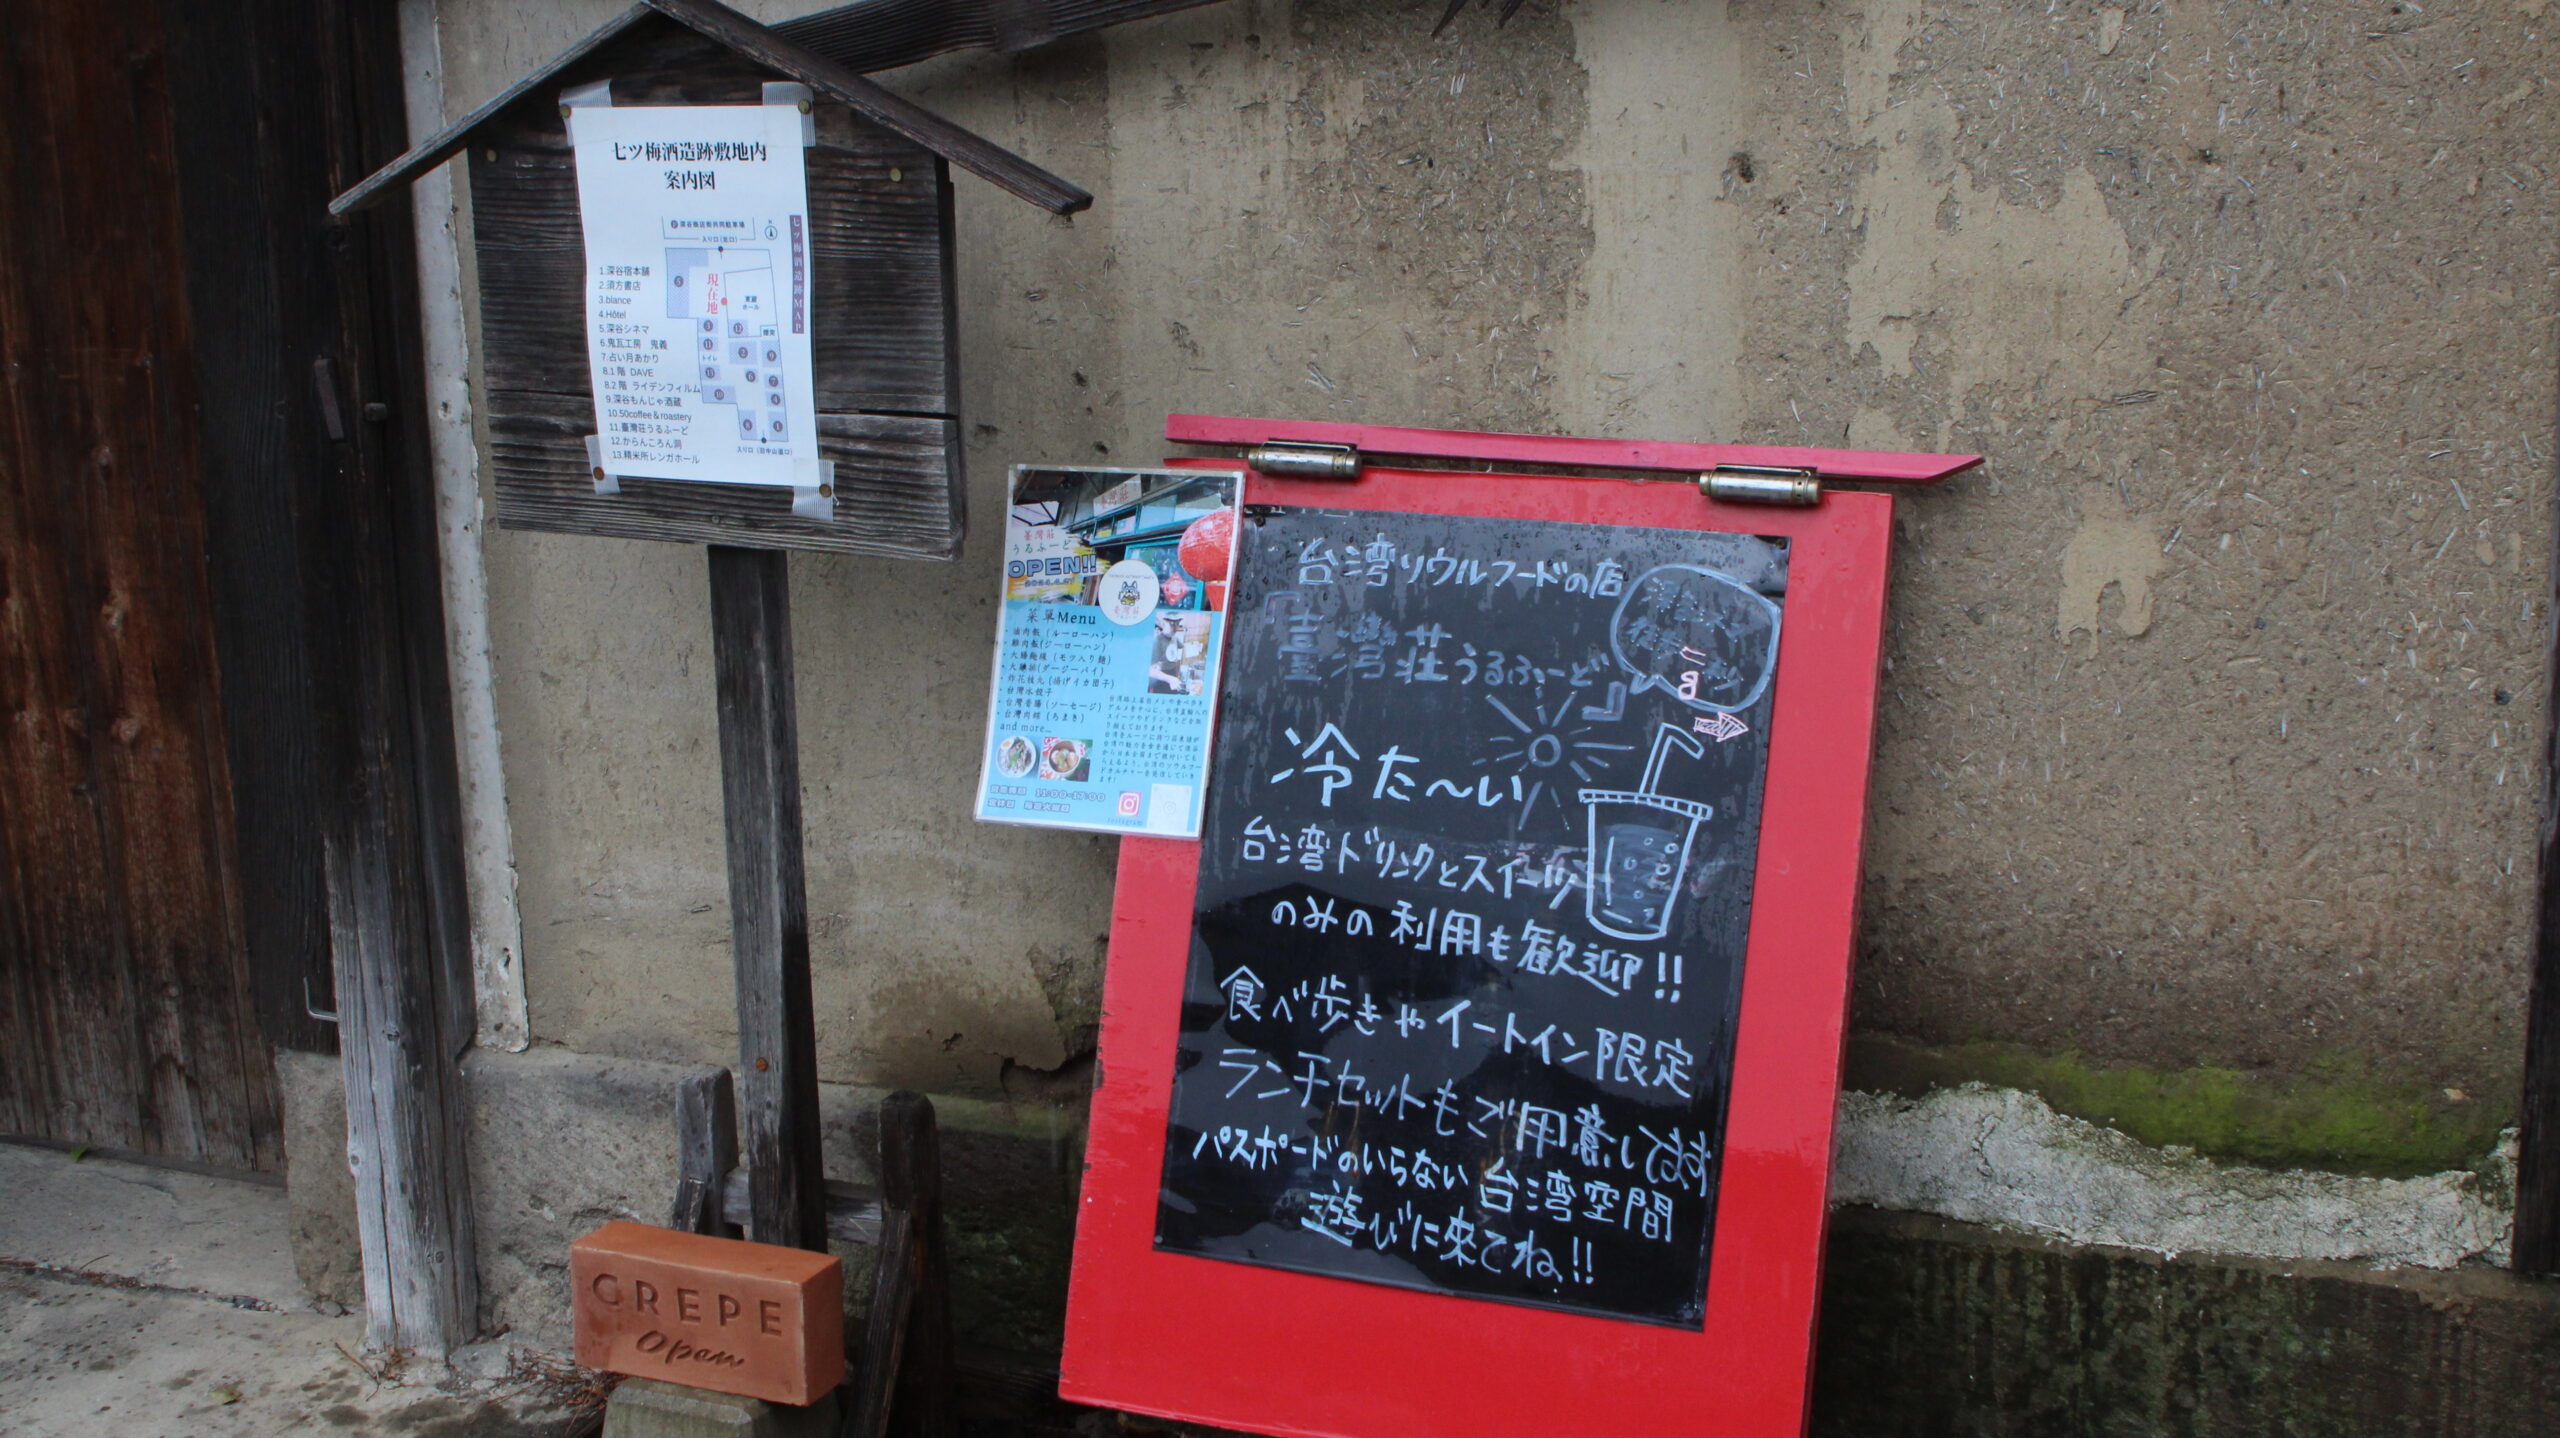 七ツ梅酒造跡敷地内
案内図
P 深谷商店街共同駐車場
入り口(北口)
N
七ツ梅酒造跡MAP
現在地
東蔵
ホール
煙突
トイレ
入り口(旧中山道口)
1.深谷宿本舗
2.須方書店
3.biance
4.Hôtel
5.深谷シネマ
6.鬼瓦工房 鬼義
7.占い月あかり
8.1 階 DAVE
8.2 階 ライデンフィルム
9.深谷もんじゃ酒蔵
10.50coffee&roastery
11.臺灣荘うるふーど
12.からんころん洞
13.精米所レンガホール
臺灣荘
うるふーど
OPEN!!
臺灣莊
菜單Menu
・滷肉飯 (ルーローハン)
・雞肉飯(ジーローハン)
・大腸麺線 (モツ入り麺)
・大雞排(ダージーパイ)
・炸花枝丸 (揚げイカ団子)
・台灣水餃子
・台灣香腸 (ソーセージ)
・台灣肉粽 (ちまき)
and more…
営業時間 11:00~17:00
定休日 毎週火曜日
Instagram
台湾ソウルフードの店
「臺灣荘うるふーど」
ココ
冷た〜い
台湾ドリンクとスイーツ
のみの利用も歓迎!!
食べ歩きやイートイン限定
ランチセットもご用意してます
パスポードのいらない台湾空間
遊びに来てね!!
CREPE
open